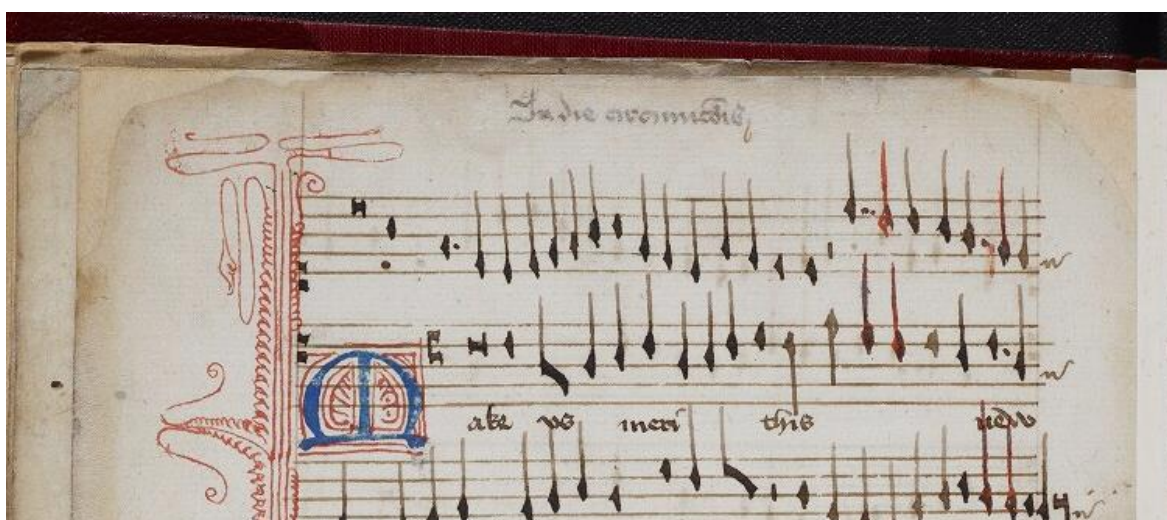 In die circumcisis
Make vs meri this new